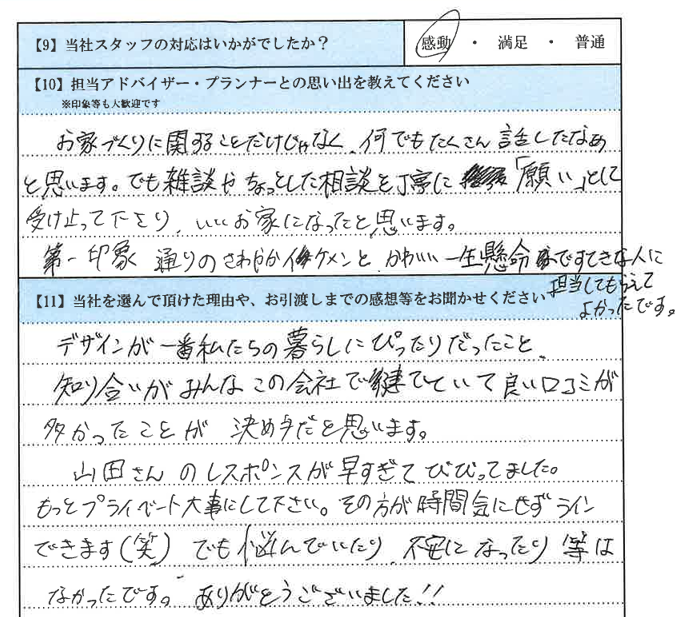 【9】当社スタッフの対応はいかがでしたか？ 感動 ・ 満足 ・ 普通
【10】担当アドバイザー・プランナーとの思い出を教えてください
※印象等も大歓迎です
お家づくりに関することだけじゃなく、何でもたくさん話したなぁ
と思います。でも雑談やちょっとした相談を丁寧に「願い」として
受け止って下さり、いいお家になったと思います。
第一印象通りのさわやかイケメンと、かわいい一生懸命ですてきな人に
担当してもらえて
よかったです。
【11】当社を選んで頂けた理由や、お引渡しまでの感想等をお聞かせください
デザインが一番私たちの暮らしにぴったりだったこと、
知り合いがみんなこの会社で建てていて良い口コミが
多かったことが決め手だと思います。
山田さんのレスポンスが早すぎてびびってました。
もっとプライベート大事にして下さい。その方が時間気にせずライン
できます(笑) でも悩んでいたり、不安になったり等は
なかったです。ありがとうございました!!